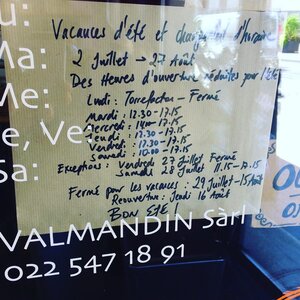 u:
Ma:
Me:
e, Ve
Sa:
Vacances d'été et changement d'horaire
2 Juillet → 27 Août
Des Heures d'ouverture réduites pour l'Été
Lundi: Torrefaction – Fermé
Mardi: 12.30-17.15
Mercredi: 17.15
Jeudi: 12.30-17.15
Vendredi: 12.30-17.15
Samedi: 10.00-17.15
Exceptions: Vendredi 27 Juillet Fermé
Samedi 28 Juillet 11.15-17.15
Fermé pour les vacances: 29 Juillet-15 Août
Reouverture: Jeudi 16 Août
BON ÉTÉ!
VALMANDIN Sàrl
022 547 18 91